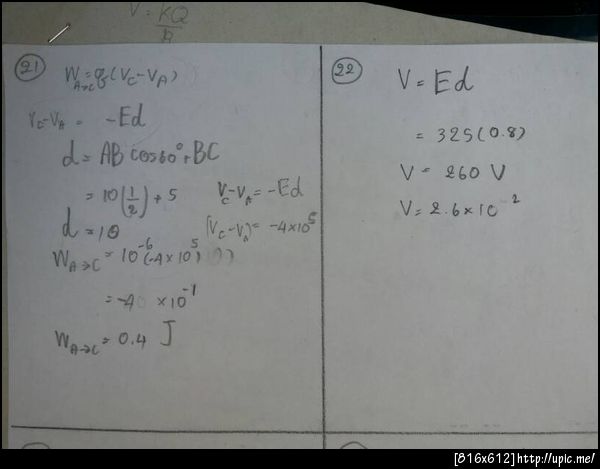 V = KQ/R
21
W A→C = q(V_C - V_A)
V_C - V_A = -Ed
d = AB cos60° + BC
= 10(1/2) + 5
d = 10
V_C - V_A = -Ed
(V_C - V_A) = -4×10^5
W A→C = 10^-6(-4×10^5)
= -4 ×10^-1
W A→C = 0.4 J
22
V = Ed
= 325(0.8)
V = 260 V
V = 2.6×10^2
[816x612]http://upic.me/